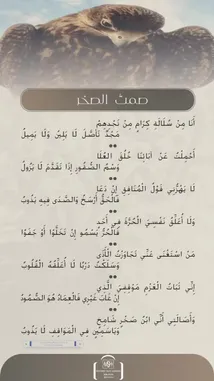 صمت الصخر
أَنَا مِنْ سُلَالَةِ كِرَامٍ مِنْ نَجْدِهِمْ
مَجْدٌ تَأَصَّلَ لَا يَلِينُ وَلَا يَمِيلُ
**
أَخْمِلْتُ عَنْ آبَائِنَا خُلُقَ العُلَا
وَسْمُ الصُّقُورِ إِذَا تَقَدَّمَ لَا يَزُولُ
**
لَا يَهُزُّنِي قَوْلُ المُنَافِقِ إِنْ دَعَا
فَالحَقُّ أَرْسَخُ وَالصَّدَى فِيهِ يَذُوبُ
**
وَلَا أُعَلِّقُ نَفْسِيَ الحُرَّةَ فِي أَحَدٍ
فَالحُرُّ يَسْمُو إِنْ تَخَلَّوْا أَوْ جَفَوْا
**
مَنِ اسْتَغْنَى عَنِّي تَجَاوَزْتُ الأَذَى
وَسَلَكْتُ دَرْبًا لَا أُعَلِّقُهُ القُلُوبَ
**
إِنِّي ثَبَاتُ العَزْمِ مَوْقِفِيَ الَّذِي
إِنْ غَابَ غَيْرِي فَالعِمَادُ هُوَ الصُّمُودُ
**
وَأَصَالَتِي أَنِّي ابْنُ صَخْرٍ شَامِخٍ
وَيَاسَمِينٍ فِي المَوَاقِفِ لَا يَذُوبُ